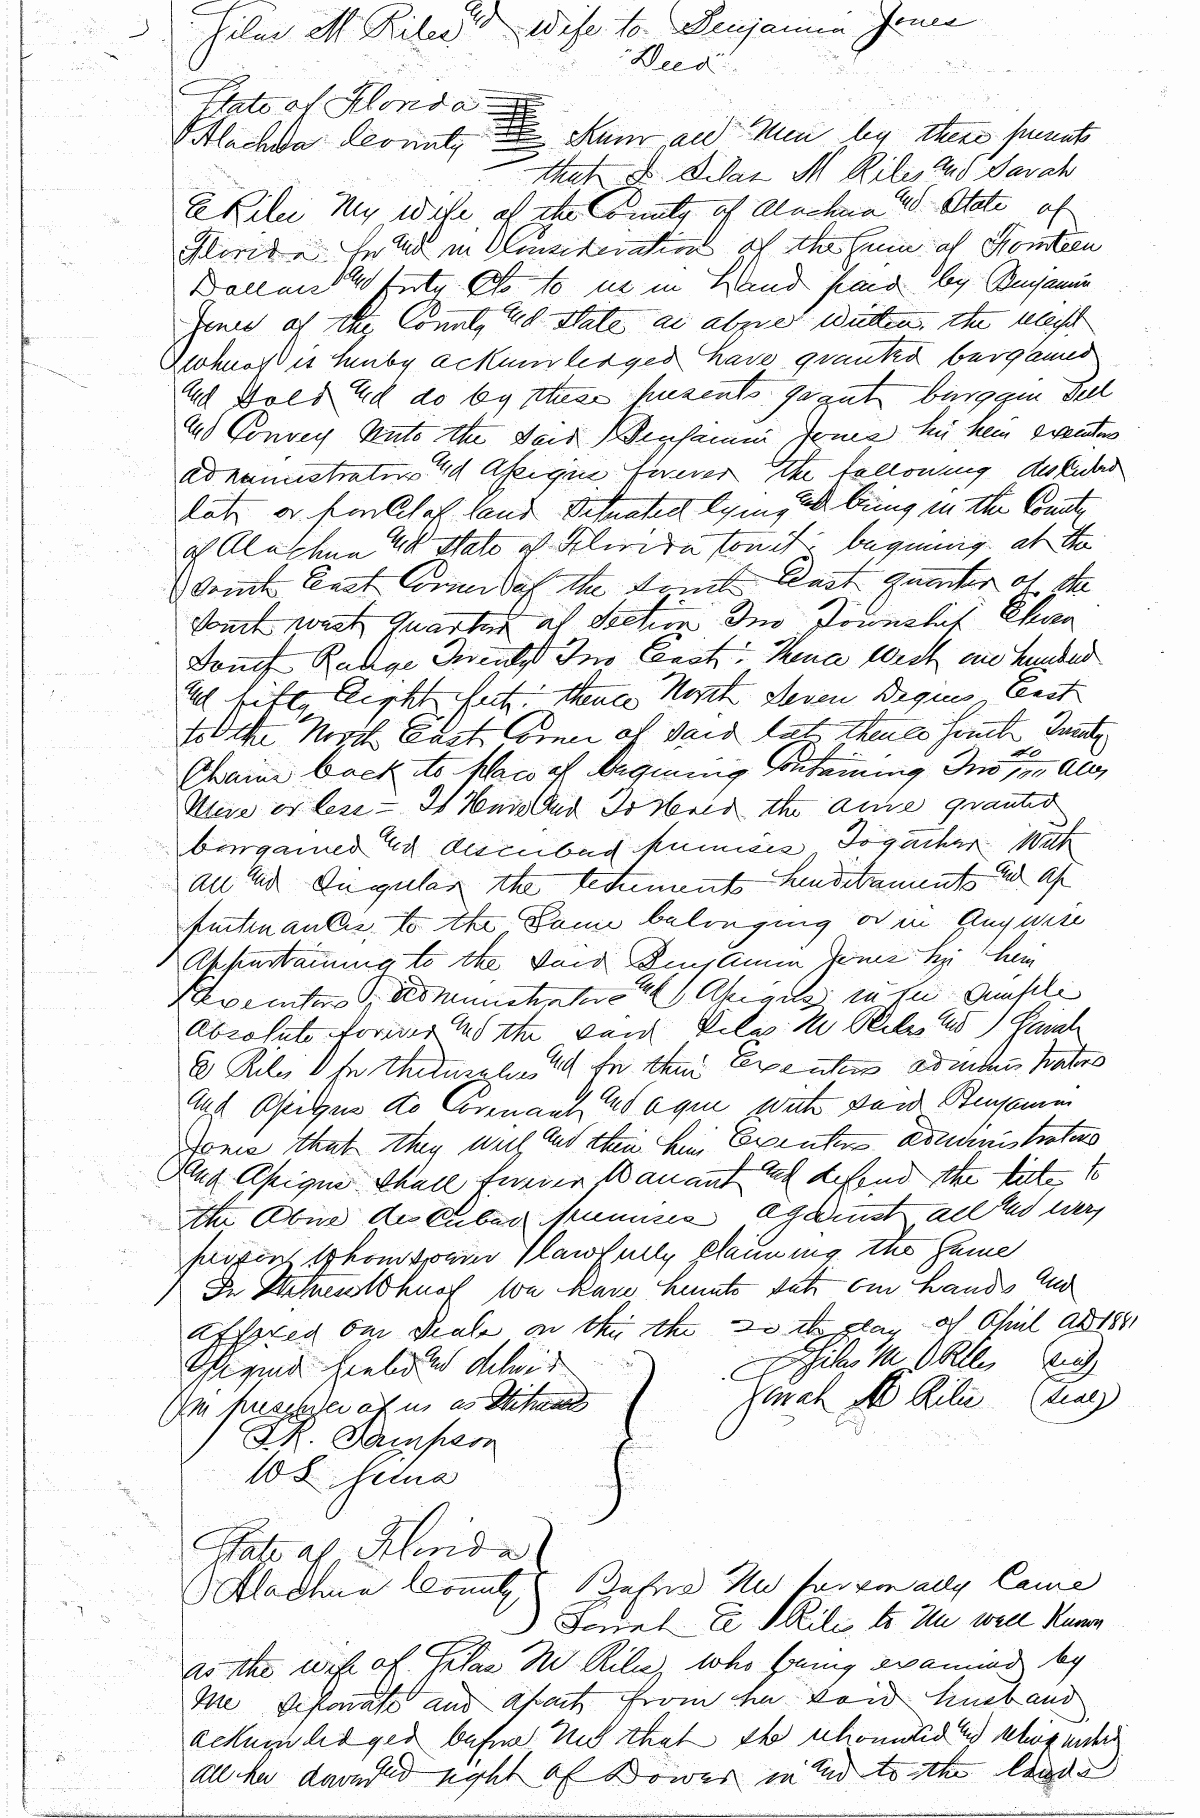 Silas M Riles and wife to Benjamin Jones
"Deed"
State of Florida
Alachua County Know all Men by these presents
that I Silas M Riles and Sarah
E Riles My wife of the County of Alachua and State of
Florida for and in Consideration of the Sum of Fourteen
Dollars and forty Cts to us in hand paid by Benjamin
Jones of the County and State as above written the receipt
whereof is hereby acknowledged have granted bargained
and Sold and do by these presents grant bargain Sell
and Convey unto the Said Benjamin Jones his heirs executors
administrators and Assigns forever the following described
lot or parcel of land Situated lying and being in the County
of Alachua and State of Florida towit: begining at the
South East Corner of the South East quarter of the
South west quarter of Section Two Township Eleven
South Range Twenty Two East: thence West one hundred
and fifty Eight feet: thence North Seven Degrees East
to the North East Corner of Said lot thence South Twenty
Chains back to place of begining Containing Two 40/100 acres
More or less = To Have and To Hold the above granted
bargained and described premises Togather With
all and Singular the tenements hereditaments and ap
purtenances, to the Same belonging or in Anywise
Appurtaining to the Said Benjamin Jones his heirs
Executors, administrators and Assigns in fee Simple
Absolute forever and the said Silas M Riles and Sarah
E Riles for themselves and for their Executors administrators
and Assigns do Covenant and agree with said Benjamin
Jones that they will and their heirs Executors administrators
and Assigns Shall forever Warrant and defend the title to
the Above described premises against all and every
person Whomsoever lawfully claiming the Same
In Witness Whereof We have hereunto Set our hands and
affixed our Seals on this the 20th day of April AD 1881
Signed Sealed and deliverd Silas M Riles (Seal)
in presence of us as Witnesses Sarah E Riles (Seal)
T.R. Sampson
W S
State of Florida
Alachua County Before Me personally Came
Sarah E Riles to Me well Known
as the wife of Silas M Riles, who being examined by
Me Seperate and apart from her said husband
acknowledged before Me that She renounced and relinquished
all her dower and right of Dower in and to the lands